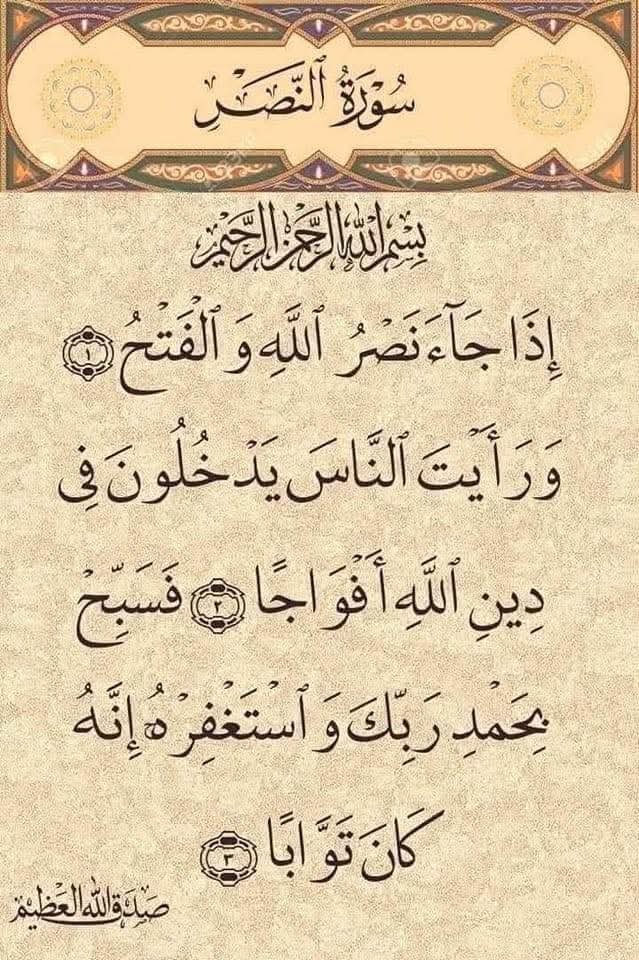 سُورَةُ ٱلنَّصْرِ
بِسْمِ ٱللَّهِ ٱلرَّحْمَٰنِ ٱلرَّحِيمِ
إِذَا جَآءَ نَصْرُ ٱللَّهِ وَٱلْفَتْحُ ١
وَرَأَيْتَ ٱلنَّاسَ يَدْخُلُونَ فِى
دِينِ ٱللَّهِ أَفْوَاجًا ٢ فَسَبِّحْ
بِحَمْدِ رَبِّكَ وَٱسْتَغْفِرْهُ إِنَّهُ
كَانَ تَوَّابًا ٣
صدق الله العظيم